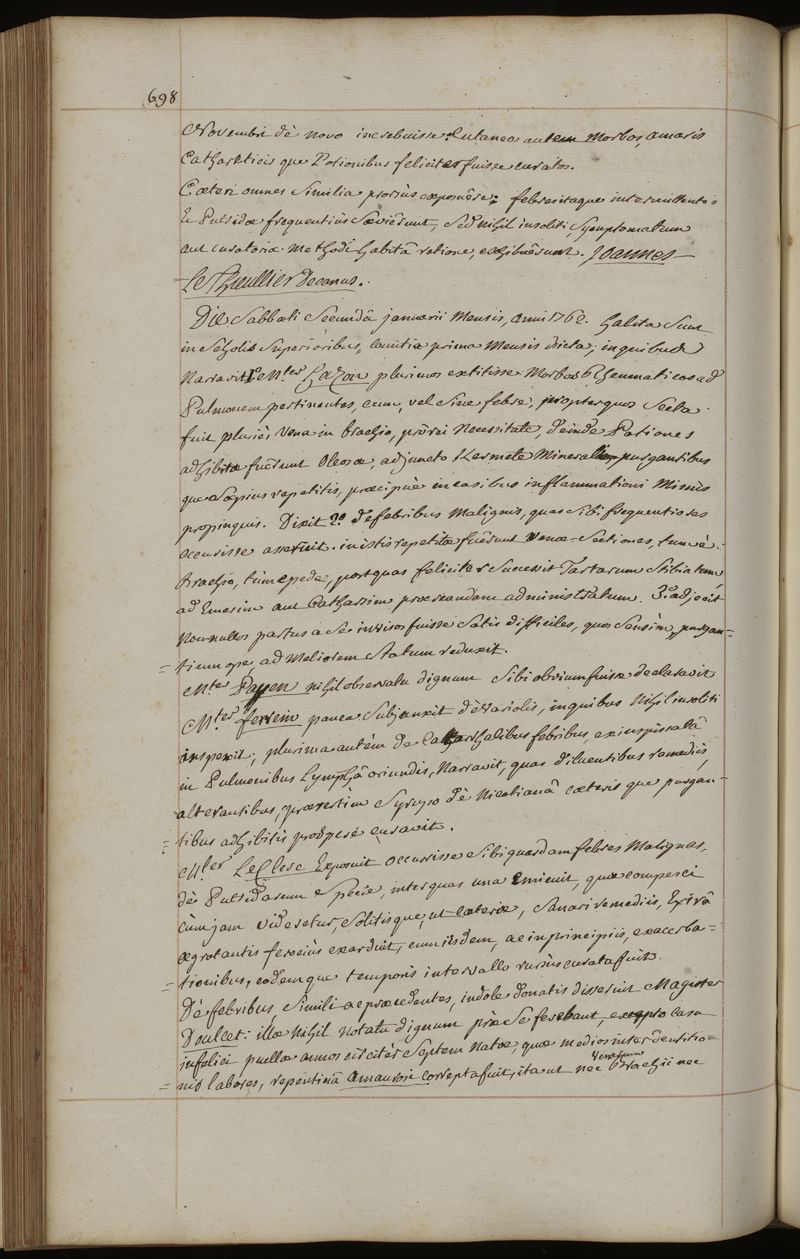 698
Novembri dè novo increbuisse: Cutaneos autem Morbos, amaris
Catharticis que Potionibus feliciter fuisse curatos.
Cæteri omnes Similia prorsùs exposuêre; febres itaque intermittentes
Et Putridæ frequentiùs Sævierunt, Sed nihil insoliti, Symptomatum
aut curatoriæ Methodi habitâ ratione, exhibuêrunt. Joannes
Le Thieullier Decanus.
Die Sabbati Secundâ januarii Mensis, anni 1762. habita Sunt
in Scholis Superioribus, Comitia prima Mensis dicta; in quibus
Narravit 1º Mter Cazon plurimos extitisse Morbos Rheumaticos ad
Pulmonem pertinentes, cum, vel Sine febre, propter quos Secta
fuit pluriès Vena in brachio, prô rei Necessitate, deinde Potiones
adhibitæ fuêrunt Oleosæ, adjuncto Kermete Minerali, purgantibus
que Sæpius repetitis, præcipuè in casibus inflammationi Minùs
propinquis. Dixit 2º de febribus Malignis, quas Sibi frequentiores
occurisse asseruit. in istis repetitæ fuêrunt Venæ Sectiones, tum è
brachio, tùm e pede, post quas feliciter Successit Tartarum Stibiatum
ad Emesim aut Catharsim procreandam administratum. 3º adjecit
Nonnullos partus à Se invisos fuisse Satis difficiles, quos Sensim, purgan=
= tium ope, ad Meliorem Statum reduxit.
Mter Payen nihil observatu dignum Sibi obvium fuisse declaravit
Mter ferrein pauca Subjunxit dè Variolis, in quibus Nihil insoliti
inspexit; plurima autèm de Catharrhalibus febribus, ex inspissatâ
in Pulmonibus Lymphâ oriundis, Narravit, quas diluentibus remediis,
alterantibus, præsertim Syrupo dè Nicotianâ cæteris que purgan-
= tibus adhibitis prosperè curavit.
Mter Le Clerc Exposuit occurisse Sibi quasdam febres Malignas,
dè Putridarum Specie, inter quas una Emicuit, quæ compesci
cùm jam Videretur, Solitisque, ut cæteræ, Sanari remediis, Ex irâ
ægrotantis ferociùs exarduit, cum iisdem, ac in principiis, exacerba-
= tionibus, eodemque temporis intervallo rursùs curata fuit.
Dè febribus, Simili ac præcedentes, indole donatis disseruit Magister
Doulcet: illæ Nihil Notatu dignum præ Se ferebant, excepto casu
infelici puellæ annos circitèr Septem natæ, quæ medios inter dentitio=
= nis labores, repentinâ amaurosi correpta fuit, ita ut nec Venarum Brachii nec